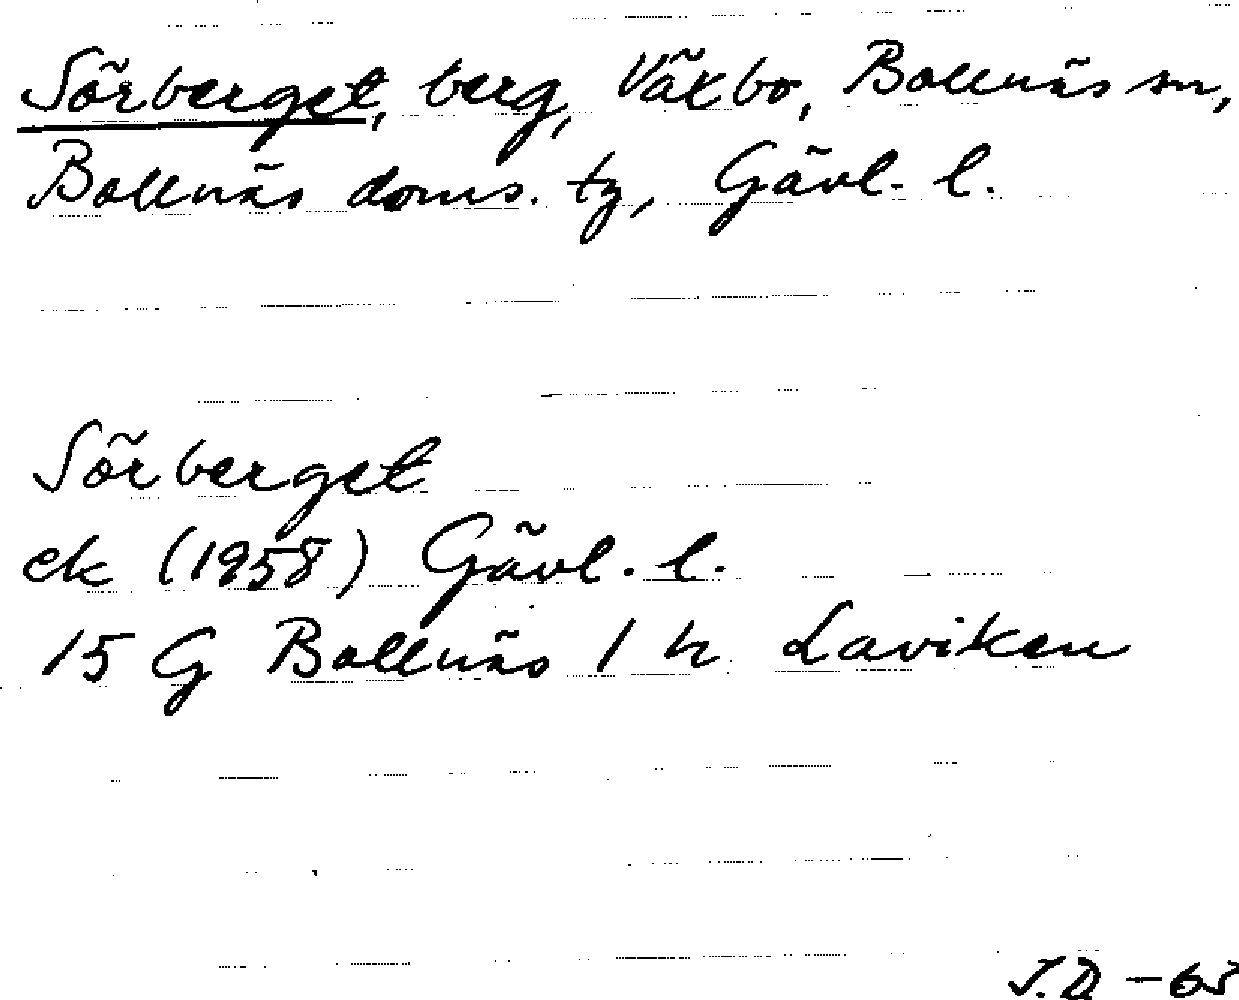 Sörberget, berg, Växbo, Bollnäs sn,
Bollnäs doms. tg, Gävl. l.
Sörberget
ek (1958) Gävl. l.
15 G Bollnäs 1 h Laviken